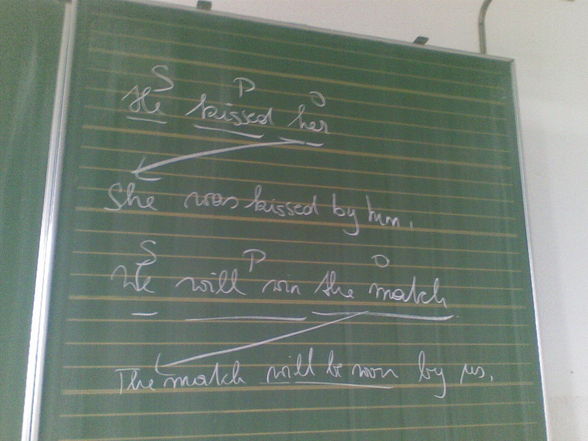 S P O
He kissed her
She was kissed by him.
S P O
We will win the match
The match will be won by us.